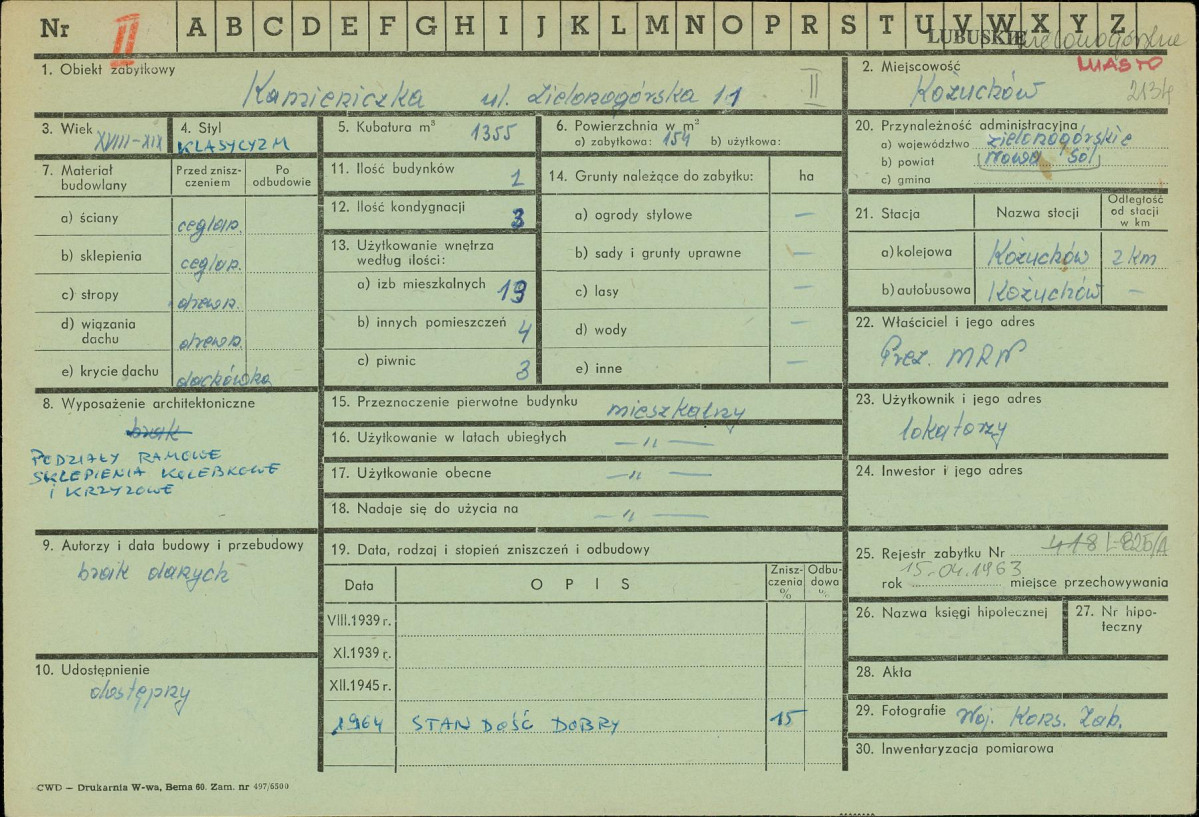 Nr II A B C D E F G H I J K L M N O P R S T U V W X Y Z
LUBUSKIE zielonogórskie
1. Obiekt zabytkowy
Kamieniczka ul. Zielonogórska 11 II
2. Miejscowość MIASTO
Kożuchów 2134
3. Wiek XVIII-XIX
4. Styl KLASYCYZM
5. Kubatura m³ 1355
6. Powierzchnia w m²
a) zabytkowa: 154 b) użytkowa:
20. Przynależność administracyjna
a) województwo zielonogórskie
b) powiat Nowa Sól
c) gmina
7. Materiał budowlany
Przed zniszczeniem
Po odbudowie
a) ściany ceglan.
b) sklepienia ceglan.
c) stropy drewn.
d) wiązania dachu drewn.
e) krycie dachu dachówka
11. Ilość budynków 1
12. Ilość kondygnacji 3
13. Użytkowanie wnętrza według ilości:
a) izb mieszkalnych 19
b) innych pomieszczeń 4
c) piwnic 3
14. Grunty należące do zabytku: ha
a) ogrody stylowe —
b) sady i grunty uprawne —
c) lasy —
d) wody —
e) inne —
21. Stacja Nazwa stacji Odległość od stacji w km
a) kolejowa Kożuchów 2 km
b) autobusowa Kożuchów —
22. Właściciel i jego adres
Prez. MRN
8. Wyposażenie architektoniczne
brak
PODZIAŁY RAMOWE
SKLEPIENIA KOLEBKOWE
I KRZYŻOWE
15. Przeznaczenie pierwotne budynku mieszkalny
16. Użytkowanie w latach ubiegłych — " —
17. Użytkowanie obecne — " —
18. Nadaje się do użycia na — " —
23. Użytkownik i jego adres
lokatorzy
24. Inwestor i jego adres
9. Autorzy i data budowy i przebudowy
brak danych
19. Data, rodzaj i stopień zniszczeń i odbudowy
Data OPIS Zniszczenia % Odbudowa %
VIII.1939 r.
XI.1939 r.
XII.1945 r.
1964 STAN DOŚĆ DOBRY 15
25. Rejestr zabytku Nr 418 L-825/A
rok 15.04.1963 miejsce przechowywania
26. Nazwa księgi hipotecznej
27. Nr hipoteczny
10. Udostępnienie
dostępny
28. Akta
29. Fotografie Woj. Kons. Zab.
30. Inwentaryzacja pomiarowa
CWD — Drukarnia W-wa, Bema 60. Zam. nr 497/6500